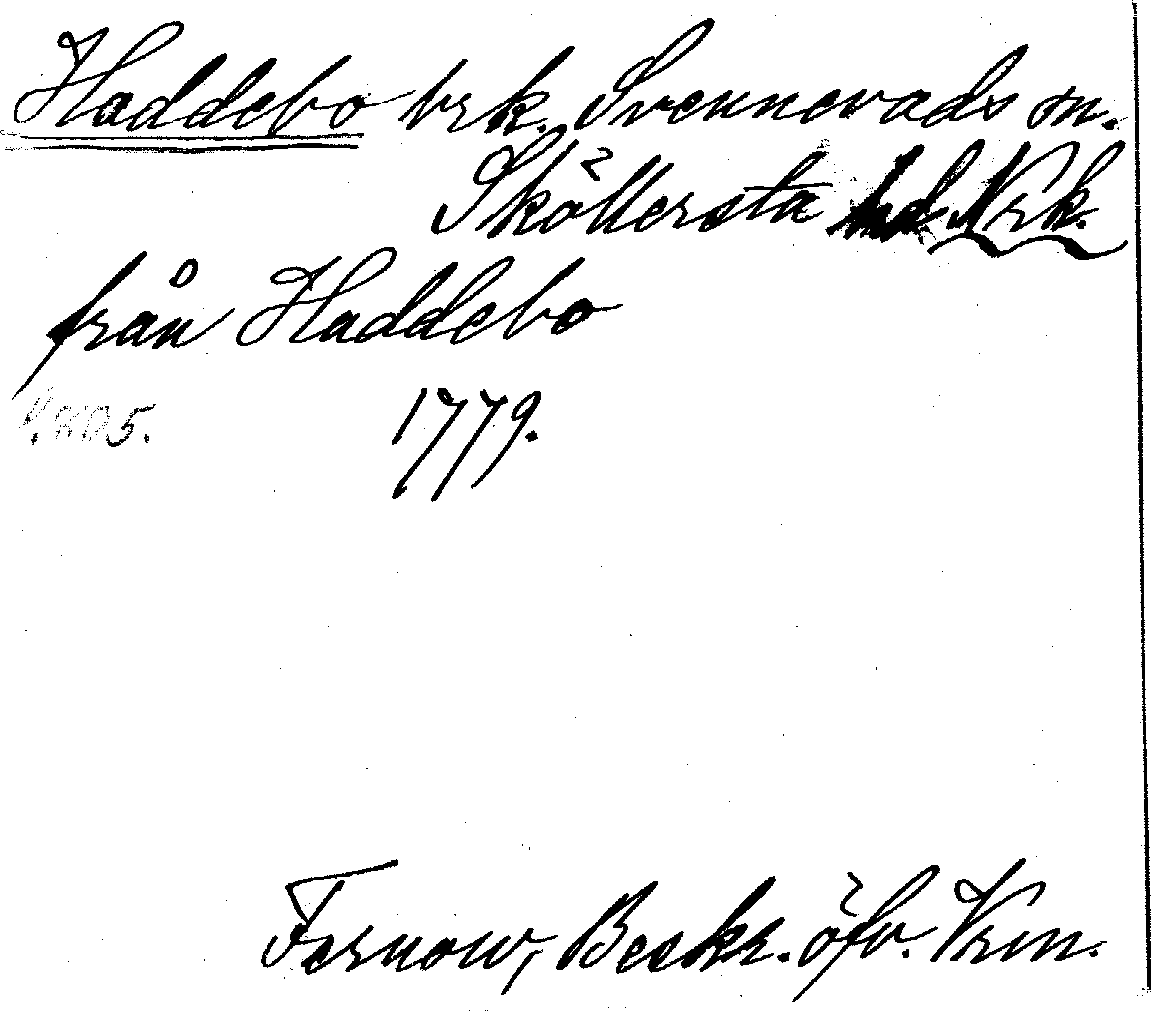 Haddebo brk. Svennevads sn.
Sköllersta hd Nrk.
från Haddebo
1779.
Fernow, Beskr. öfv. Vrm.